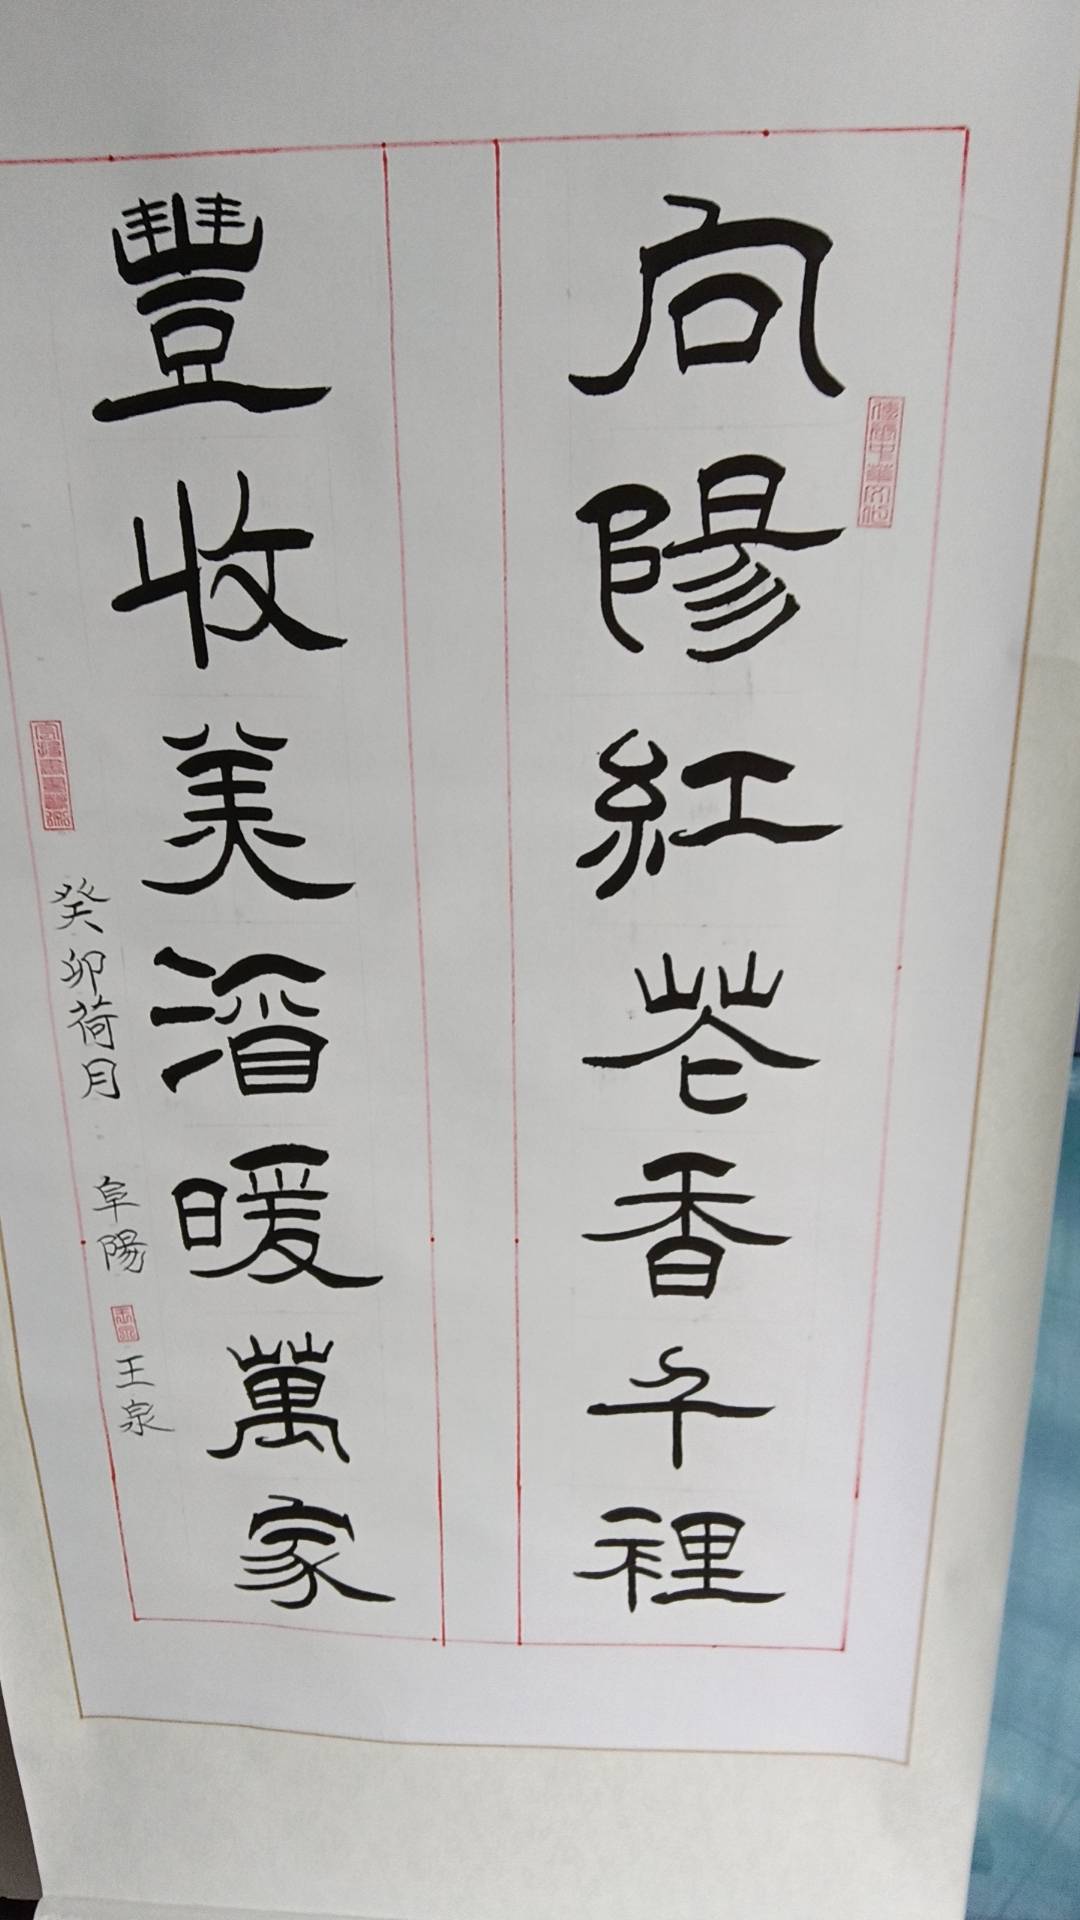 向陽紅花香千裡
豐收美酒暖萬家
癸卯荷月 阜陽 王泉